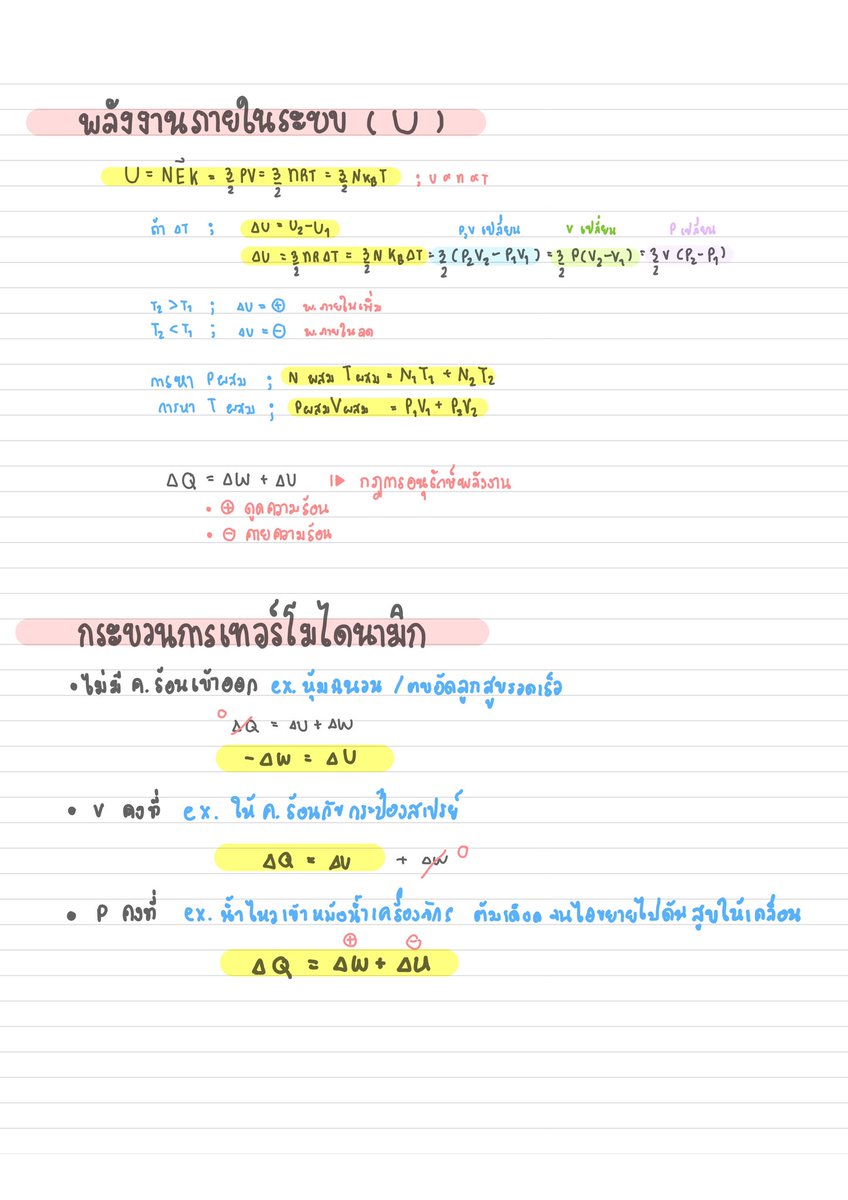 พลังงานภายในระบบ ( U )
U = NĒk = 3/2 PV = 3/2 nRT = 3/2 NKBT ; U ∝ n ∝ T
P,V เปลี่ยน V เปลี่ยน P เปลี่ยน
ถ้า ΔT ; ΔU = U2-U1
ΔU = 3/2 nRΔT = 3/2 N KBΔT = 3/2 (P2V2 - P1V1) = 3/2 P(V2-V1) = 3/2 V (P2-P1)
T2 > T1 ; ΔU = ⊕ พ.ภายในเพิ่ม
T2 < T1 ; ΔU = ⊖ พ.ภายในลด
การหา P ผสม ; N ผสม T ผสม = N1T1 + N2T2
การหา T ผสม ; PผสมVผสม = P1V1 + P2V2
ΔQ = ΔW + ΔU กฎการอนุรักษ์พลังงาน
• ⊕ ดูดความร้อน
• ⊖ คายความร้อน
กระบวนการเทอร์โมไดนามิก
• ไม่มี ค.ร้อนเข้าออก ex. หุ้มฉนวน / ตบอัดลูกสูบรวดเร็ว
0 ΔQ = ΔU + ΔW
-ΔW = ΔU
• V คงที่ ex. ให้ ค.ร้อนกับกระป๋องสเปรย์
ΔQ = ΔU + ΔW 0
• P คงที่ ex. น้ำไหลเข้าหม้อน้ำเครื่องจักร ต้มเดือดจนไอขยายไปดันสูบให้เคลื่อน
⊕ ⊖
ΔQ = ΔW + ΔU